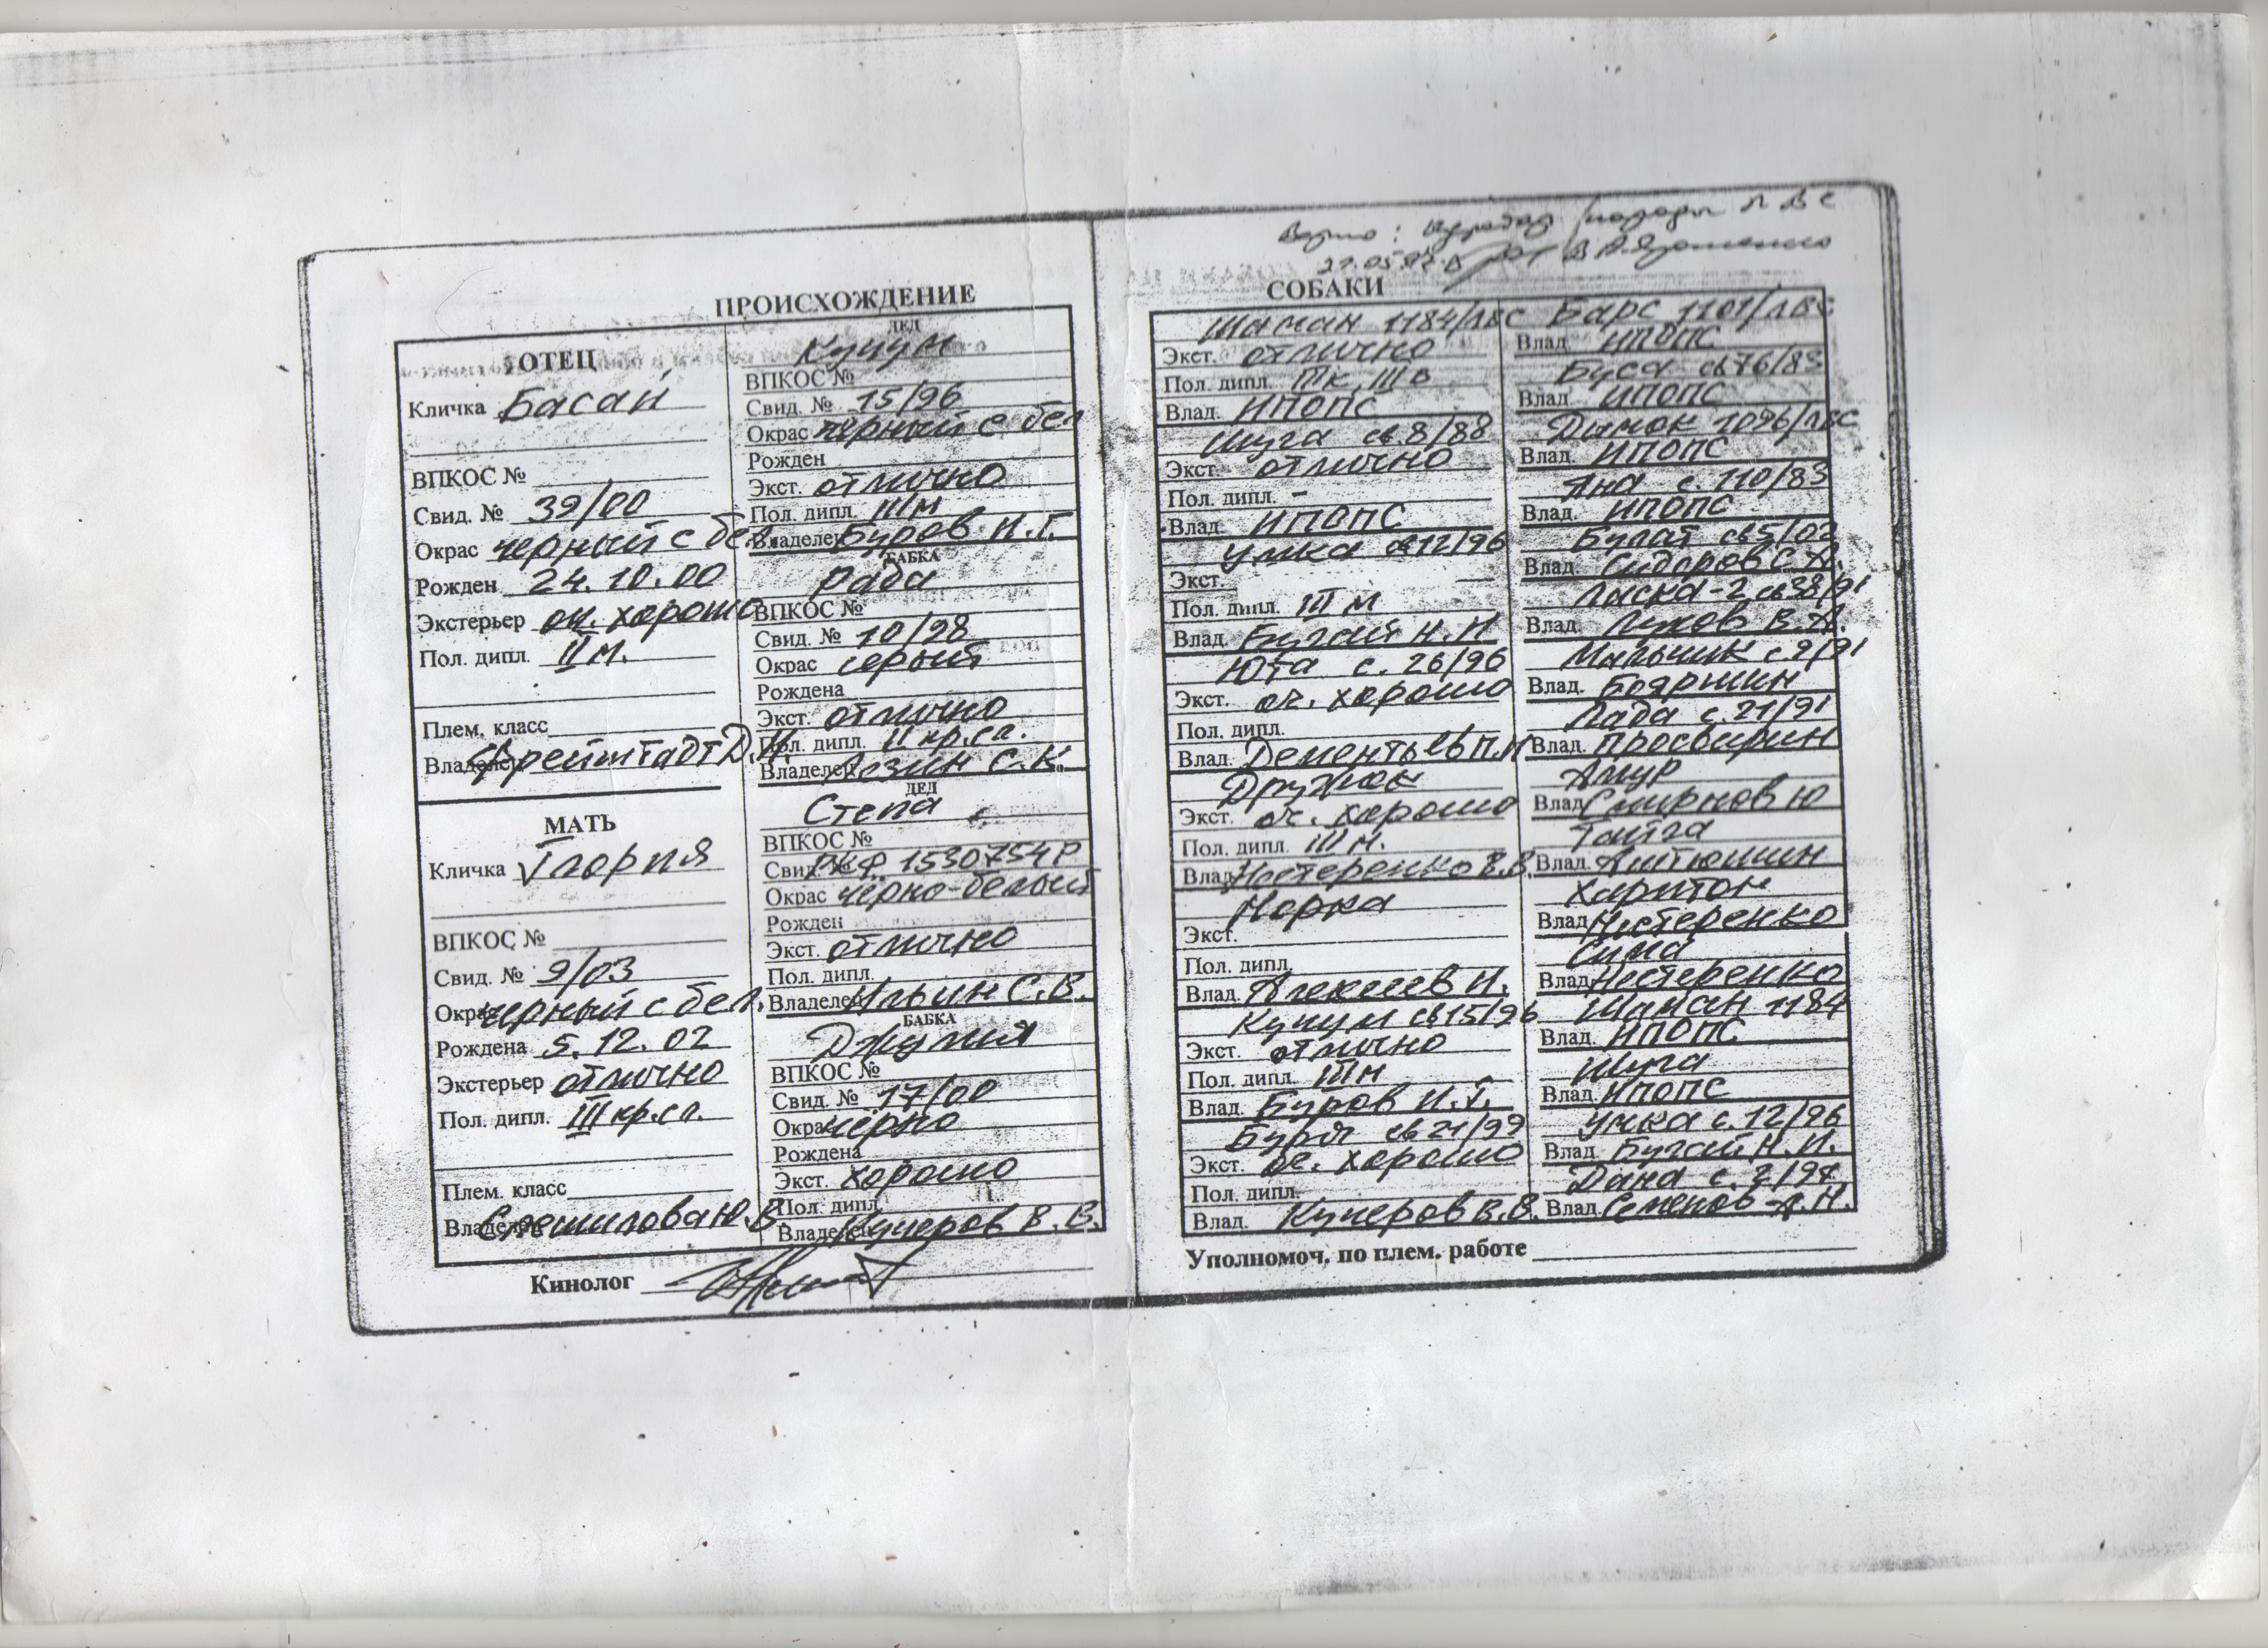 Верно:
29.05.
ПРОИСХОЖДЕНИЕ
ОТЕЦ
Кличка Басай
ВПКОС №
Свид. № 39/00
Окрас черный с бел.
Рожден 24.10.00
Экстерьер оч. хорошо
Пол. дипл. II м.
Плем. класс
Владелец Фрейштадт Д.И.
МАТЬ
Кличка Глория
ВПКОС №
Свид. № 9/03
Окрас черный с бел.
Рождена 5.12.02
Экстерьер отлично
Пол. дипл. III кр.сл.
Плем. класс
Владелец
ДЕД
Кучум
ВПКОС №
Свид. № 15/96
Окрас чёрный с бел
Рожден
Экст. отлично
Пол. дипл. III м
Владелец Буров И.Г.
БАБКА
Рада
ВПКОС №
Свид. № 10/98
Окрас серый
Рождена
Экст. отлично
Пол. дипл. II кр.сл.
Владелец С.К.
ДЕД
Степа
ВПКОС №
Свид. РКФ 1530754Р
Окрас черно-белый
Рожден
Экст. отлично
Пол. дипл.
Владелец Ильин С.В.
БАБКА
Джулия
ВПКОС №
Свид. № 17/00
Окрас чёрно
Рождена
Экст. хорошо
Пол. дипл.
Владелец Кучеров В.В.
Кинолог
СОБАКИ
Шаман 1184/лвс
Экст. отлично
Пол. дипл. IIк, IIIв
Влад. ИПОПС
Шуга св.8/88
Экст. отлично
Пол. дипл. -
Влад. ИПОПС
Умка св12/96
Экст.
Пол. дипл. III м
Влад. Бугай Н.И
Юта с. 26/96
Экст. оч. хорошо
Пол. дипл.
Влад. Дементьев П.И
Дружок
Экст. оч. хорошо
Пол. дипл. III м.
Влад. Нестеренко В.В.
Норка
Экст.
Пол. дипл.
Влад. Алексеев И.
Кучум св15/96
Экст. отлично
Пол. дипл. III м
Влад. Буров И.Г.
Буря св 21/99
Экст. оч. хорошо
Пол. дипл.
Влад. Кучеров В.В.
Барс 1101/лвс
Влад. ИПОПС
Буса св76/83
Влад. ИПОПС
Дымок 1096/лвс
Влад. ИПОПС
Яна с. 110/83
Влад. ИПОПС
Булат св5/02
Влад. Сидоров С.А.
Ласка-2 св38/91
Влад. Лухов В.А.
Мальчик с.9/91
Влад. Бояршин
Лада с.21/91
Влад. Просвирин
Амур
Влад. Смирнов Ю
Тайга
Влад. Антюшин
Харитон
Влад. Нестеренко
Сима
Влад. Нестеренко
Шаман 1184
Влад. ИПОПС
Шуга
Влад. ИПОПС
Умка с.12/96
Влад. Бугай Н.И.
Дана с. 2/94
Влад. Семенов А.Н.
Уполномоч. по плем. работе